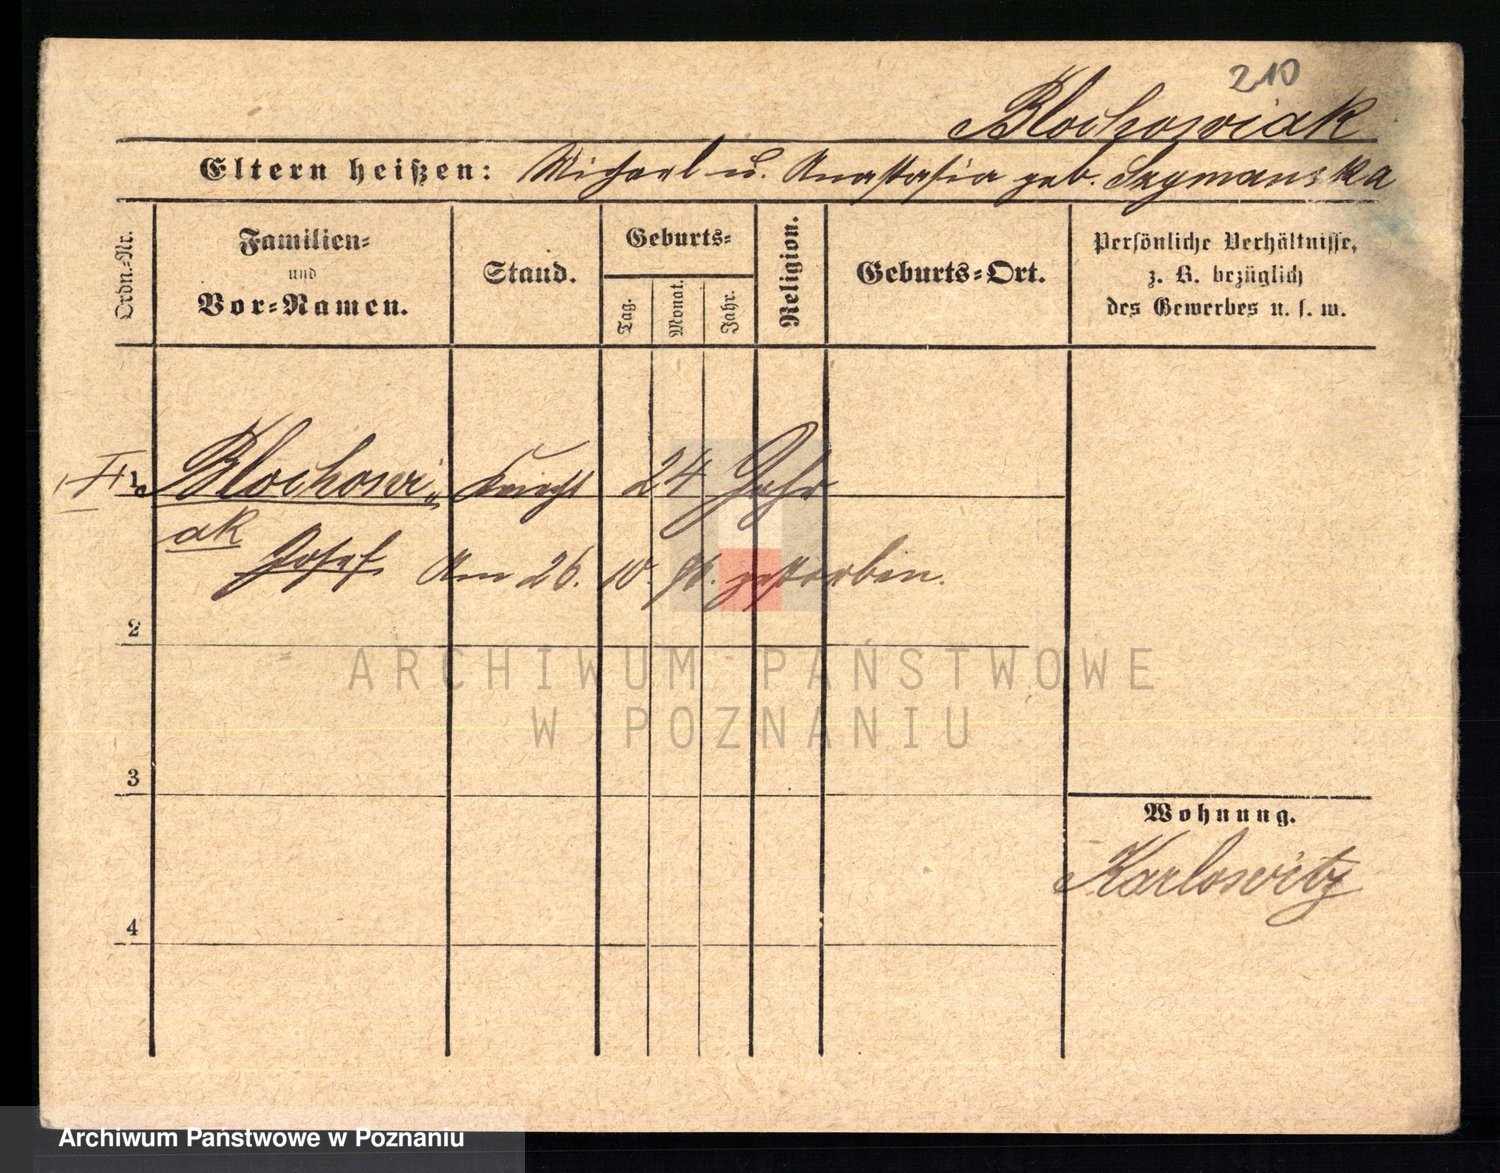 210
Blochowiak
Eltern heißen: Michael u. Anastasia geb. Szymanska
Ordn.-Nr.
Familien-
und
Vor-Namen.
Stand.
Geburts-
Tag.
Monat.
Jahr.
Religion.
Geburts-Ort.
Persönliche Verhältnisse,
z. B. bezüglich
des Gewerbes u. s. w.
1 Blochowi- Knecht 24 Jahr
ak
Josef. Am 26. 10. 96. gestorben.
2
ARCHIWUM PAŃSTWOWE
W POZNANIU
3
Wohnung.
Karlowitz
4
Archiwum Państwowe w Poznaniu